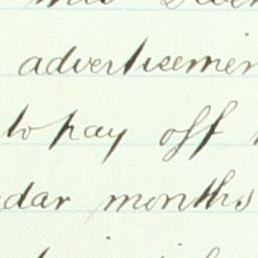 advertisemen
to pay off
dar months